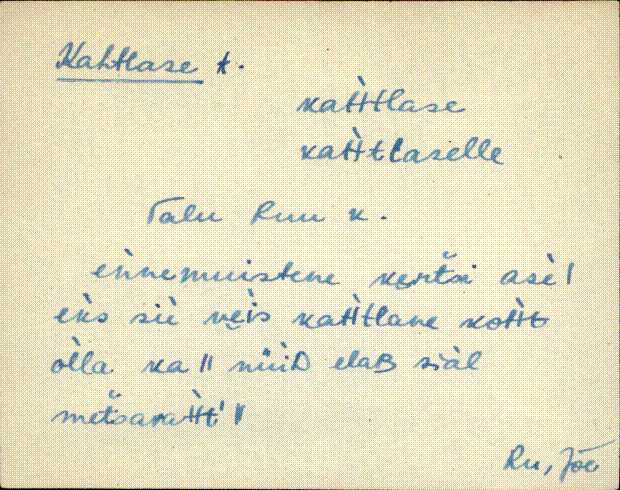 Kahtlase t.
kaħ̀tlase
kaħ̀tlaselle
Talu Ruu k.
ennemuistene keŕtsi asè /
eks siì veìs kaħ̀tlane koħ̀t
òlla ka // nüìD elaB siàl
metsavaħ̀t' //
Ru, Jõe